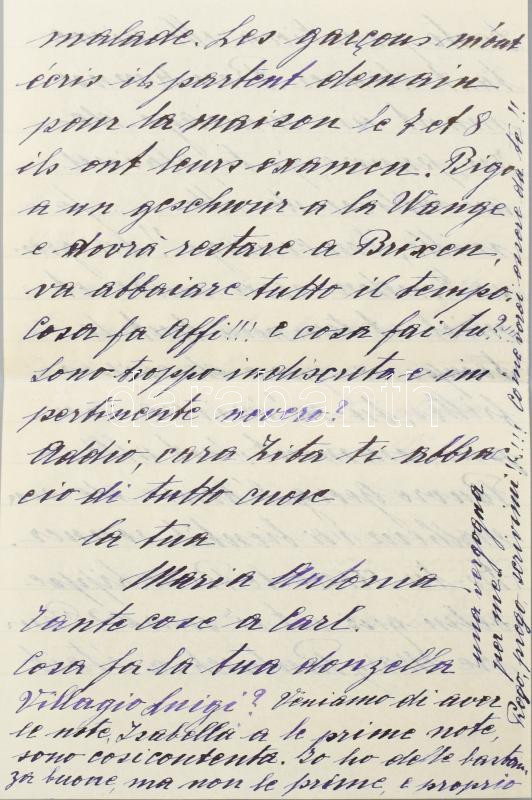 malade. Les garçons m'ont
écris ils partent demain
pour la maison le 7 et 8
ils ont leurs examen. Bigo
a un geschwür a la Wange
e dovrà restare a Brixen,
va abbaiare tutto il tempo.
Cosa fa Affi!!! e cosa fai tu?
Sono troppo indiscreta e im
pertinente nevero?
Addio, cara Zita ti abbra
cio di tutto cuore
la tua
Maria Antonia
Tante cose a Carl.
Cosa fa la tua donzella
Villagio Luigi? Veniamo di aver
le note, Isabella a le prime note,
sono cosi contenta. Io ho delle bastan
za buone, ma non le prime, e proprio
una vergogna
per me!
Prego, prego scrivimi!!!!! come vai avere da te!!
darabanth